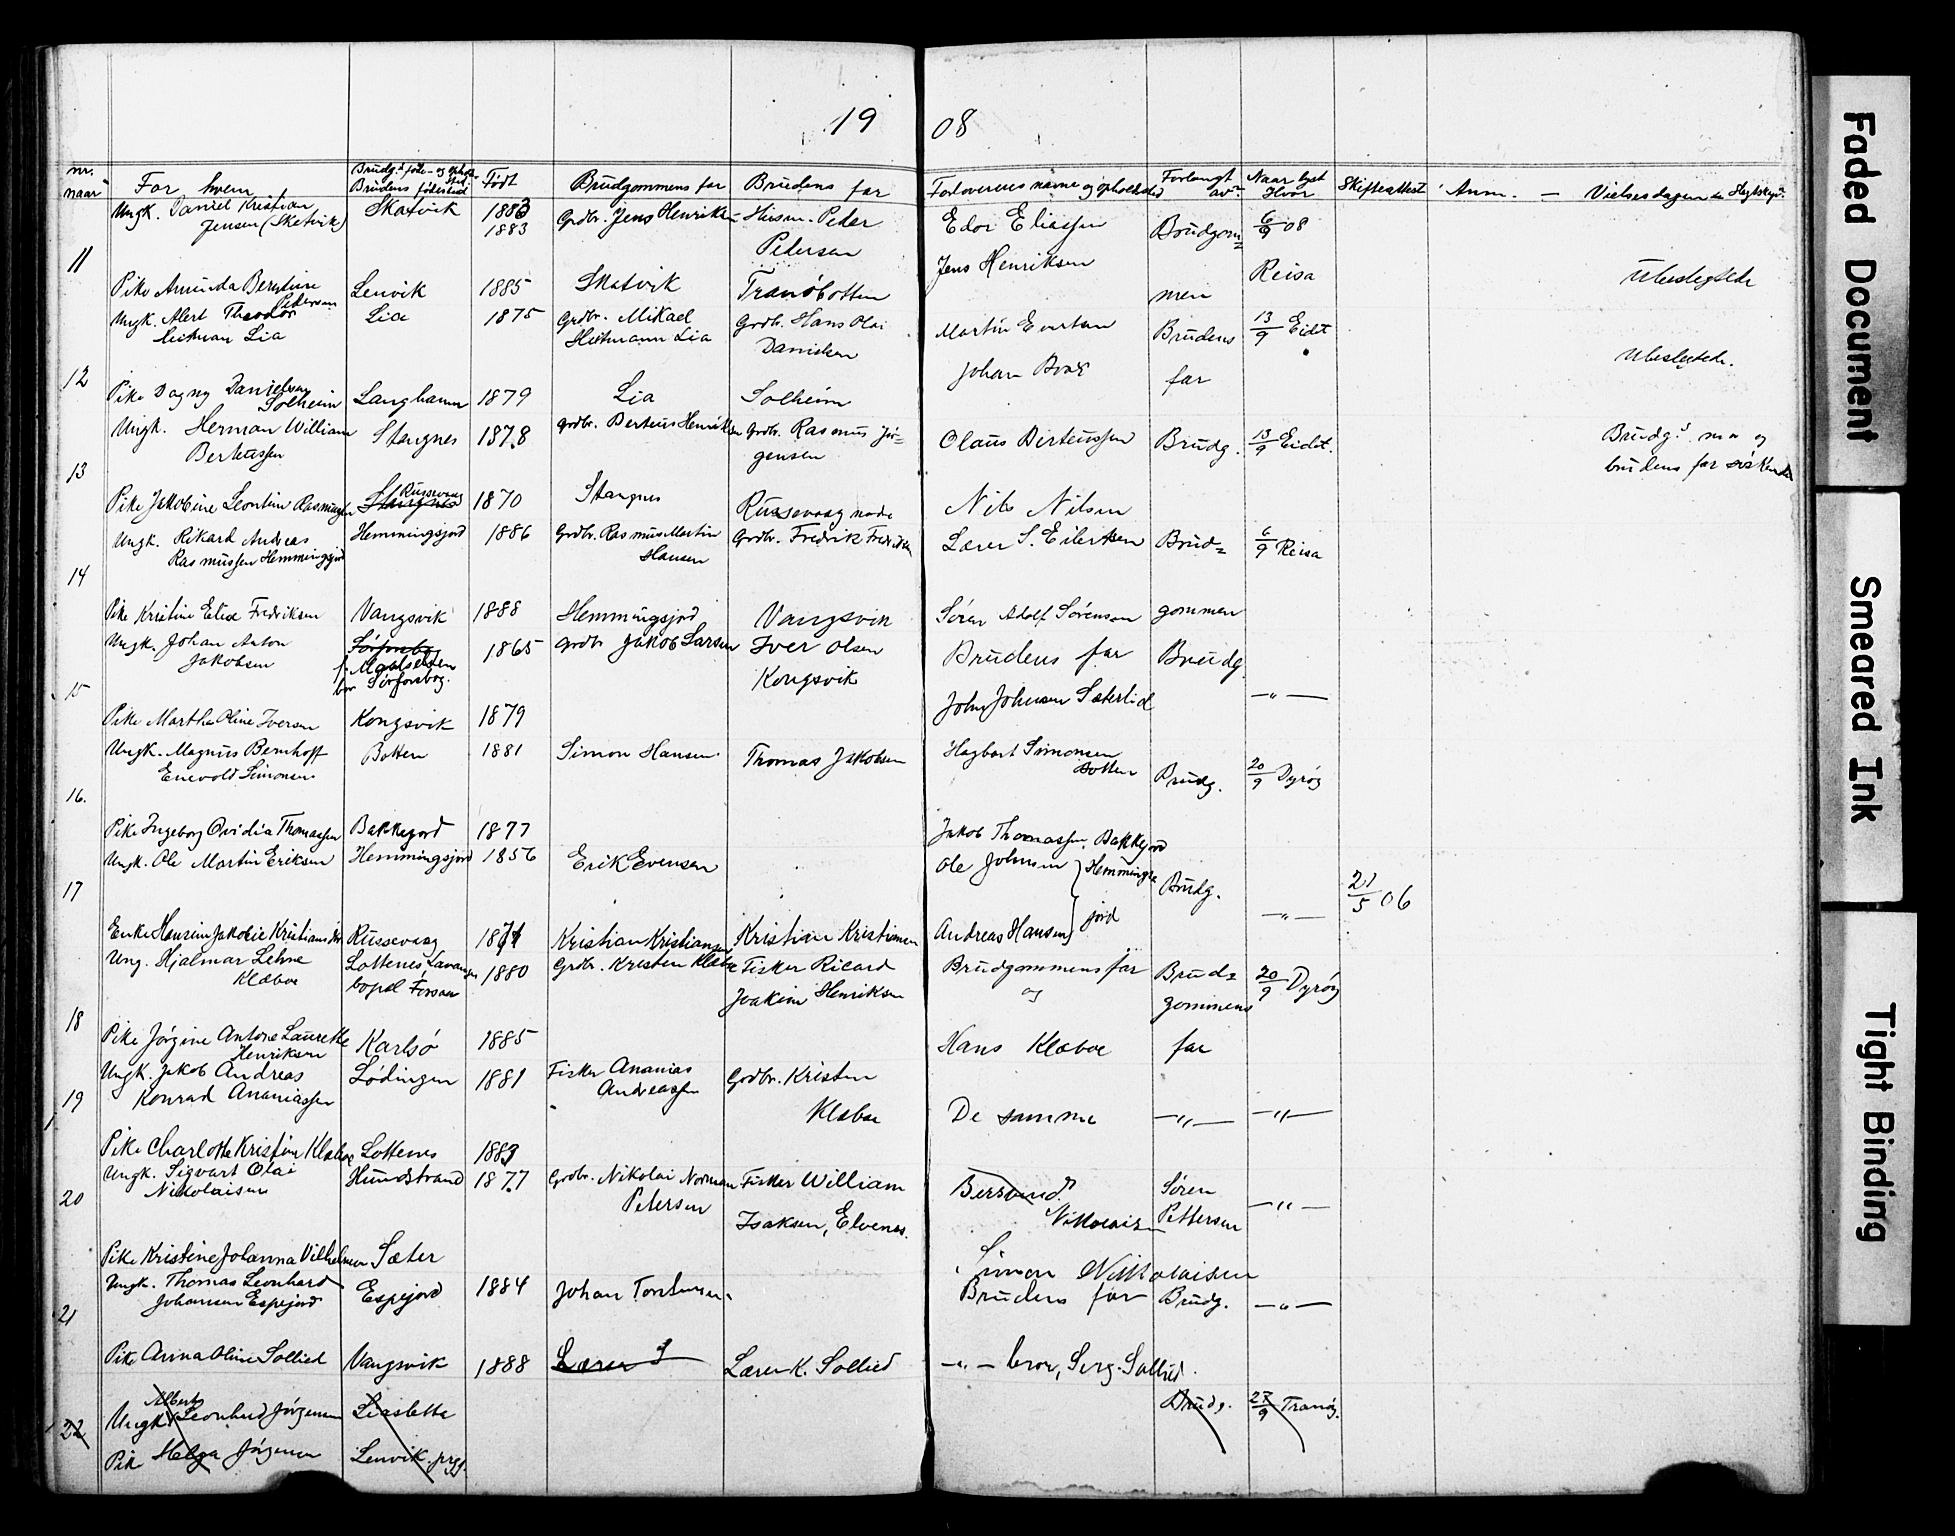 19 08
nr. naar For hvem Brudg.s föde- og opholds sted Brudens födested Födt Brudgommens far Brudens far Forloverenes navne og opholdssted Forlangt av Naar lyst Hvor Skifteattest Anm. — Vielsesdagen
11
Ungk. Daniel Kristian Skatvik 1883 Grdbr. Jens Henriksen Peder Edor Eliassen Brudgom= 6/9 08
Jensen (Skatvik) 1883 Petersen Jens Henriksen Reisa
Pike Amunda Berntine Lenvik 1885 Skatvik Tranöbotten men Ubeslegtede
Petersen
12
Ungk. Alert Theodor Lia 1875 Grdbr. Mikael Grdb. Hans Olai Martin Evertsen Brudens 13/9 Eidet
Heitman Lia Heitmann Lia Danielsen Johan far Ubeslegtede.
Pike Dagny Danielsen Langhamn 1879 Lia Solheim
Solheim
13
Ungk. Herman William Stangnes 1878 Grdbr. Berteus Henriksen Grdb. Rasmus Jör= Olaus Berteussen Brudg. 13/9 Eidet. Brudg.s mor og
Berteussen gensen brudens far söskende
Pike Jakobine Leontine Rasmussen Stangnes Russevaag 1870 Stangnes Russevaag Nils Nilsen
14
Ungk. Rikard Andreas Hemmingsjord 1886 Grdbr. Rasmus Martin Grdbr. Fredrik Fredriksen Lærer S. Eilertsen Brud= 6/9 Reisa
Rasmussen Hemmingsjord Hansen
Pike Kristine Elise Fredriksen Vangsvik 1888 Hemmingsjord Vangsvik Sören Adolf Sörensen gommen
15
Ungk. Johan Anton Sörforsbog 1865 Grdbr Jakob Larsen Iver Olsen Brudens far Brudg.
Jakobsen f. Maalselven Kongsvik
bor Sörforsbog. John Johnsen Sæterlid —"—
Pike Martha Oline Iversen Kongsvik 1879
16.
Ungk. Magnus Bernhoff Botten 1881 Simon Hansen Thomas Jakobsen Hagbart Simonsen Brudg. 20/9 Dyröy
Enevold Simonsen Botten
Pike Ingeborg Ovidia Thomassen Bakkejord 1877 Jakob Thomassen, Bakkejord
17
Ungk. Ole Martin Eriksen Hemmingsjord 1856 Erik Evensen Ole Johnsen } Hemmings= Brudg. —"— 21/5 06
Enke Hansine Jakobie Kristiansdtr Russevaag 1871 Kristian Kristiansen Kristian Kristiansen Andreas Hansen } jord
18
Ung. Hjalmar Lehne Lottenes Lavangen 1880 Grdbr. Kristen Klæboe Fisker Ricard Brudgommens far Brud= 20/9 Dyröy
Klæboe bopel Forsaa Joakim Henriksen og gommens
Pike Jörgine Antone Laurette Karlsö 1885 Hans Klæboe far
Henriksen
19
Ungk. Jakob Andreas Lödingen 1881 Fisker Ananias Grdbr. Kristen
Konrad Ananiassen Andreassen Klæboe De samme —"— —"—
Pike Charlotte Kristine Klæboe Lottenes 1883
20
Ungk. Sigvart Olai Hundstrand 1877 Grdbr. Nikolai Norman Fisker William Sören —"—
Nikolaisen Petersen Isaksen, Elvenes. Nikolaisen Pettersen
Pike Kristine Johanna Vilhelmsen Sæter Simon Nikolaisen
21
Ungk. Thomas Leonhard Espejord 1884 Johan Brudens far Brudg. —"—
Johansen Espejord
Pike Anna Oline Sollied Vangsvik 1888 Lærer S Lærer K. Sollied —"— bror, Serg. Sollied.
22
Ungk. Albert Leonhard Jörgensen Liasletta Brudg. 27/9 Tranöy.
Pik Helga Jörgensen Lenvik prgj.
Faded Document
Smeared Ink
Tight Binding